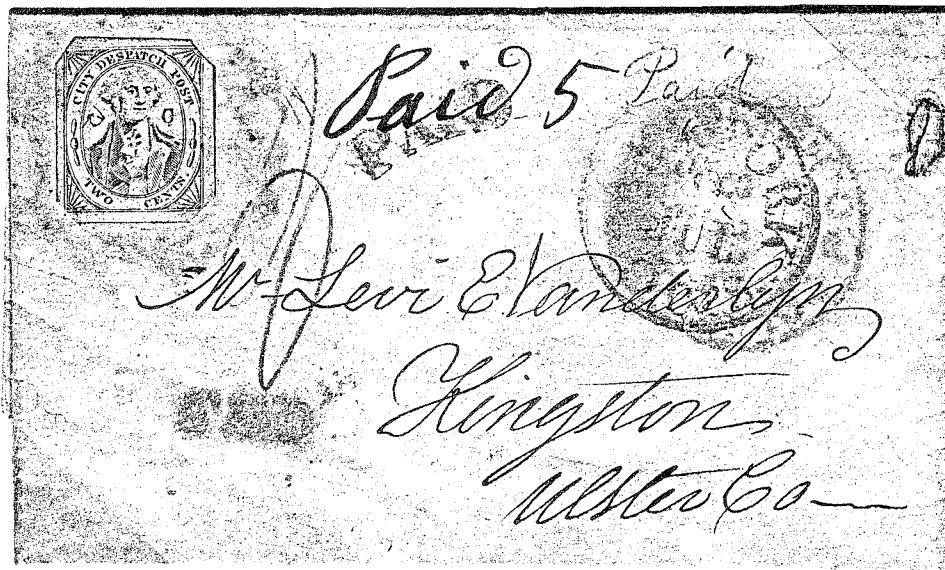 CITY DESPATCH POST
TWO CENTS.
Paid 5 Paid
PAID
ORK
Mr Levi E Vanderlyn
Kingston
Ulster Co